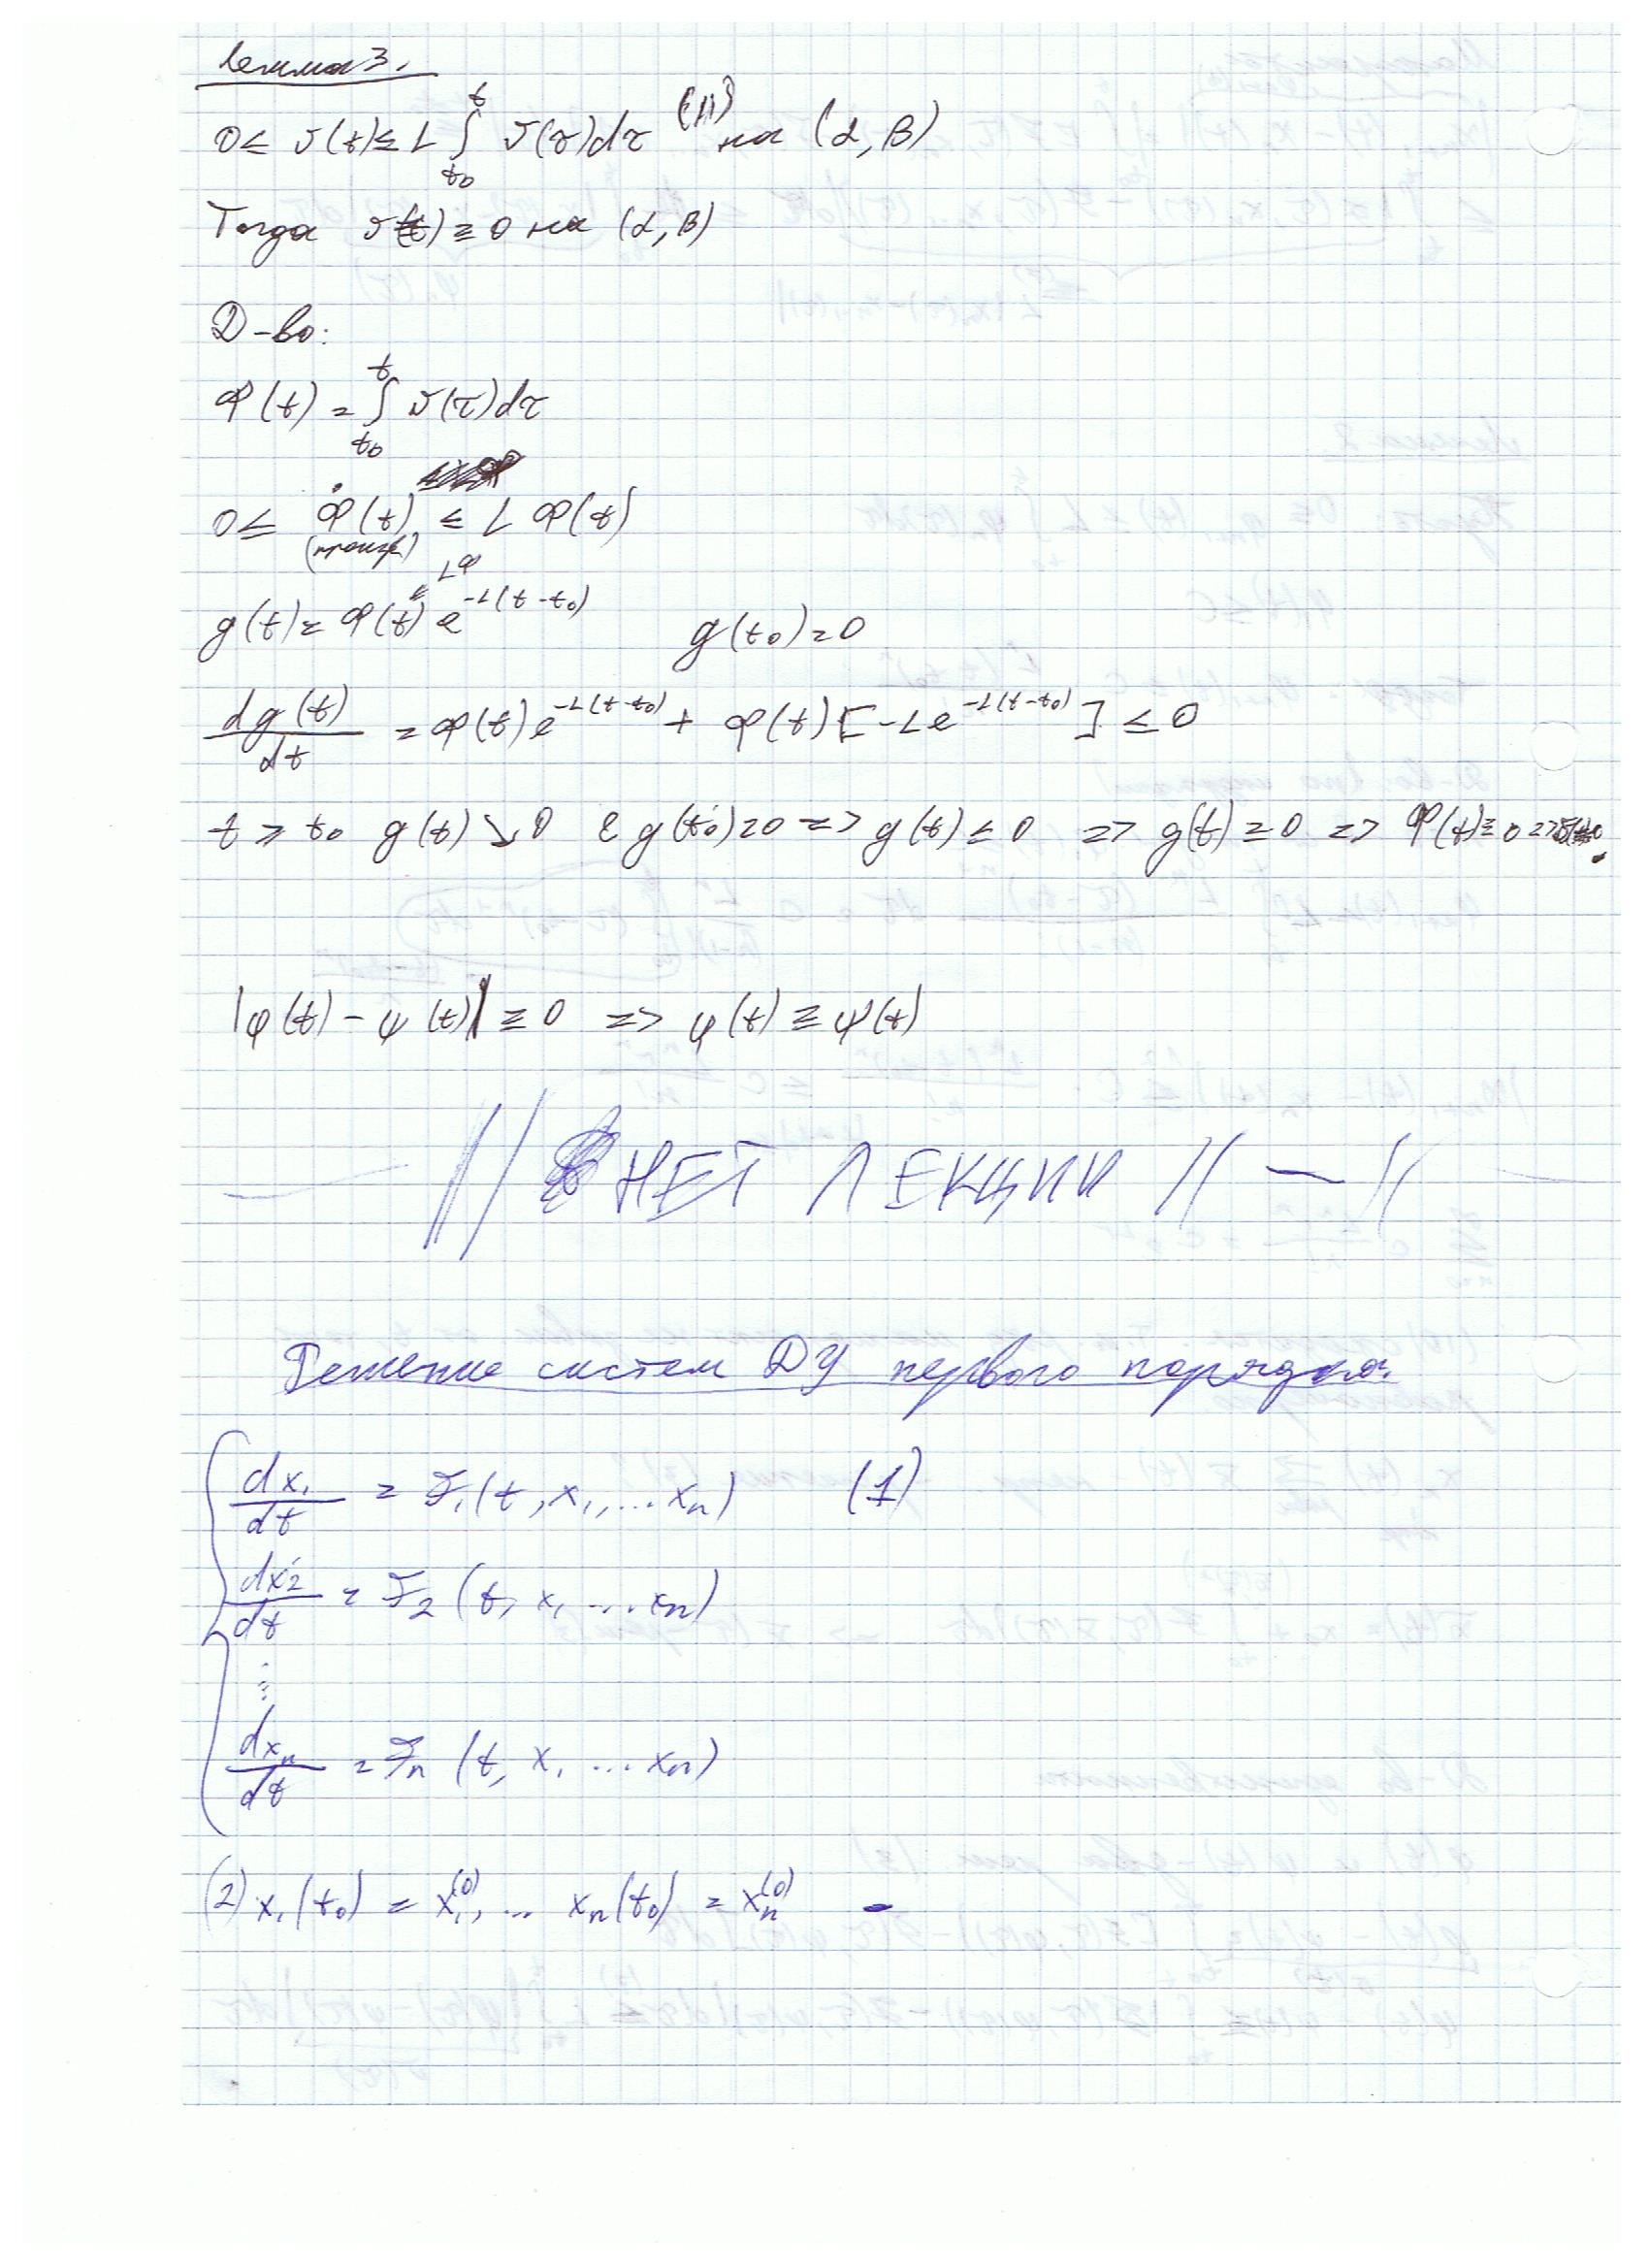 Лемма 3.
0 ≤ v(t) ≤ L ∫_{t₀}^{t} v(τ)dτ (11) на (α, β)
Тогда v(t) ≡ 0 на (α, β)
Д-во:
Φ(t) = ∫_{t₀}^{t} v(τ)dτ
0 ≤ Φ̇(t) ≤ L Φ(t)
≤ LΦ
g(t) = Φ(t) e^{-L(t-t₀)} g(t₀) = 0
dg(t)/dt = Φ(t) e^{-L(t-t₀)} + Φ(t) [-L e^{-L(t-t₀)}] ≤ 0
t ≥ t₀ g(t) ↘ 0 g(t₀) = 0 => g(t) ≤ 0 => g(t) = 0 => Φ(t) ≡ 0 =>
|φ(t) - ψ(t)| ≡ 0 => φ(t) ≡ ψ(t)
// НЕТ ЛЕКЦИИ // — //
Решение систем ДУ первого порядка.
dx₁/dt = F₁(t, x₁, ... xₙ) (1)
dx₂/dt = F₂(t, x₁ ... xₙ)
⋮
dxₙ/dt = Fₙ(t, x₁ ... xₙ)
(2) x₁(t₀) = x₁^{(0)}, ... xₙ(t₀) = xₙ^{(0)} -